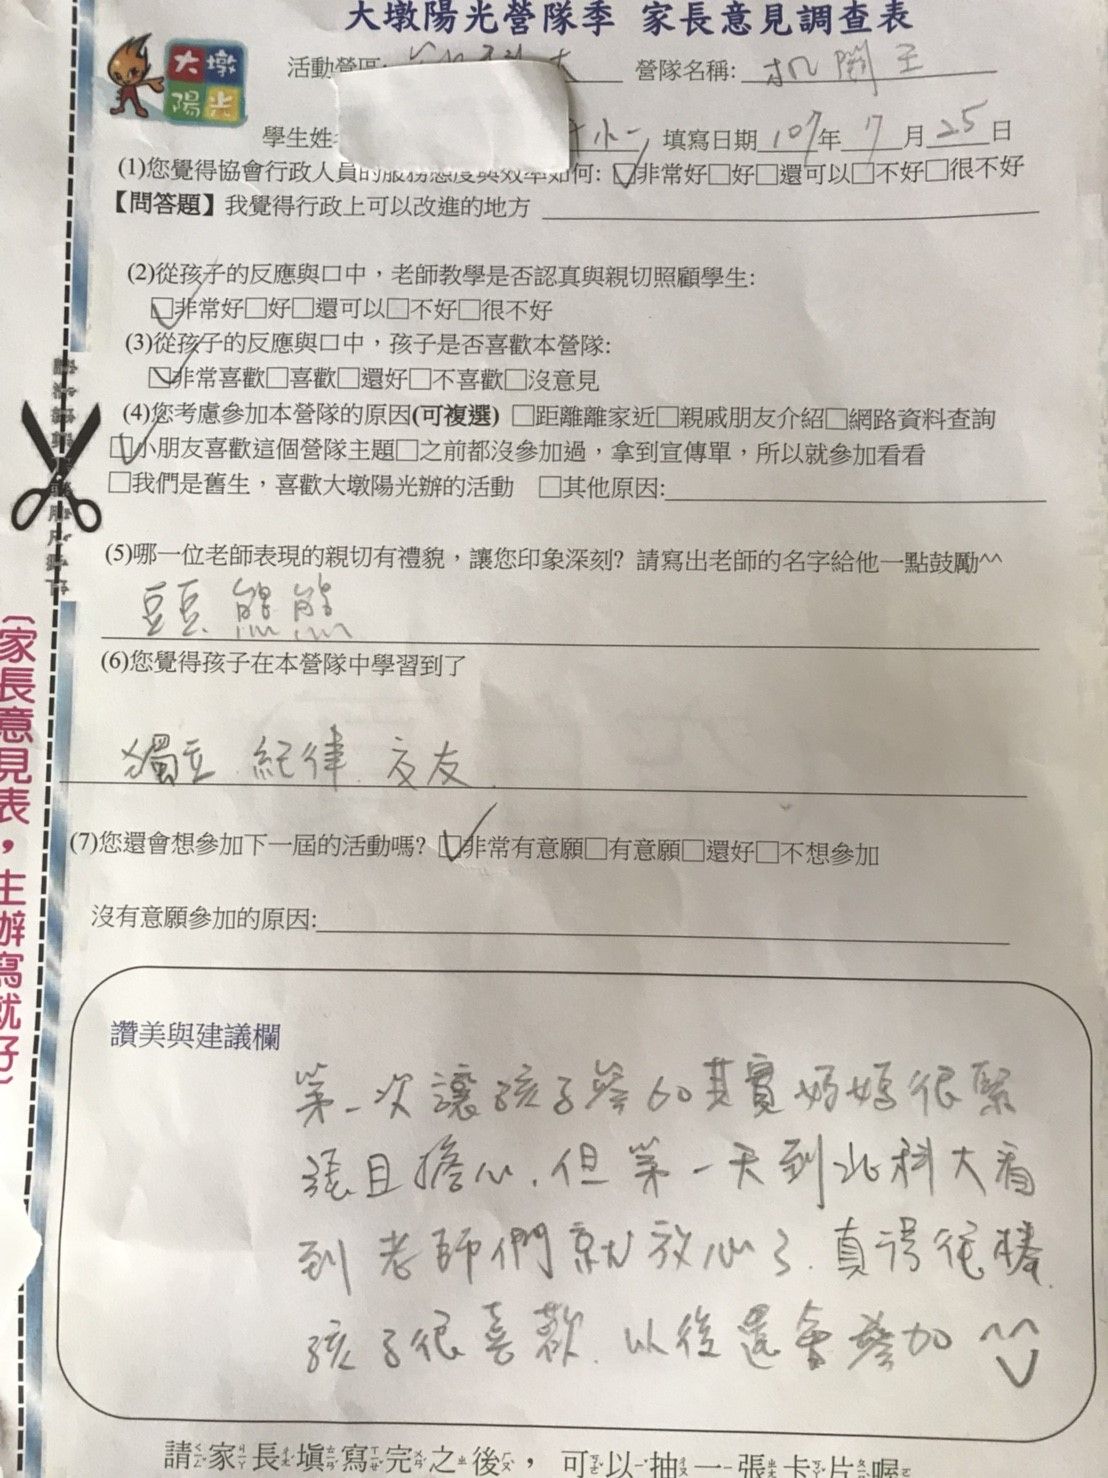 大墩陽光營隊季 家長意見調查表
大墩
陽光
活動營區: 營隊名稱: 机關王
學生姓 小一 填寫日期 107年 7月 25日
(1)您覺得協會行政人員的服務態度與效率如何: ☑非常好□好□還可以□不好□很不好
【問答題】我覺得行政上可以改進的地方
(2)從孩子的反應與口中，老師教學是否認真與親切照顧學生:
☑非常好□好□還可以□不好□很不好
(3)從孩子的反應與口中，孩子是否喜歡本營隊:
☑非常喜歡□喜歡□還好□不喜歡□沒意見
(4)您考慮參加本營隊的原因(可複選) □距離離家近□親戚朋友介紹□網路資料查詢
☑小朋友喜歡這個營隊主題□之前都沒參加過，拿到宣傳單，所以就參加看看
□我們是舊生，喜歡大墩陽光辦的活動 □其他原因:
(5)哪一位老師表現的親切有禮貌，讓您印象深刻? 請寫出老師的名字給他一點鼓勵^^
豆豆 熊熊
(6)您覺得孩子在本營隊中學習到了
獨立 紀律 交友.
(7)您還會想參加下一屆的活動嗎? ☑非常有意願□有意願□還好□不想參加
沒有意願參加的原因:
讚美與建議欄
第一次讓孩子參加其實媽媽很緊
張且擔心. 但第一天到北科大看
到老師們就放心了. 真得很棒.
孩子很喜歡. 以後還會參加 ^^
請家長填寫完之後，可以抽一張卡片喔
(家長意見表，主辦寫就好)